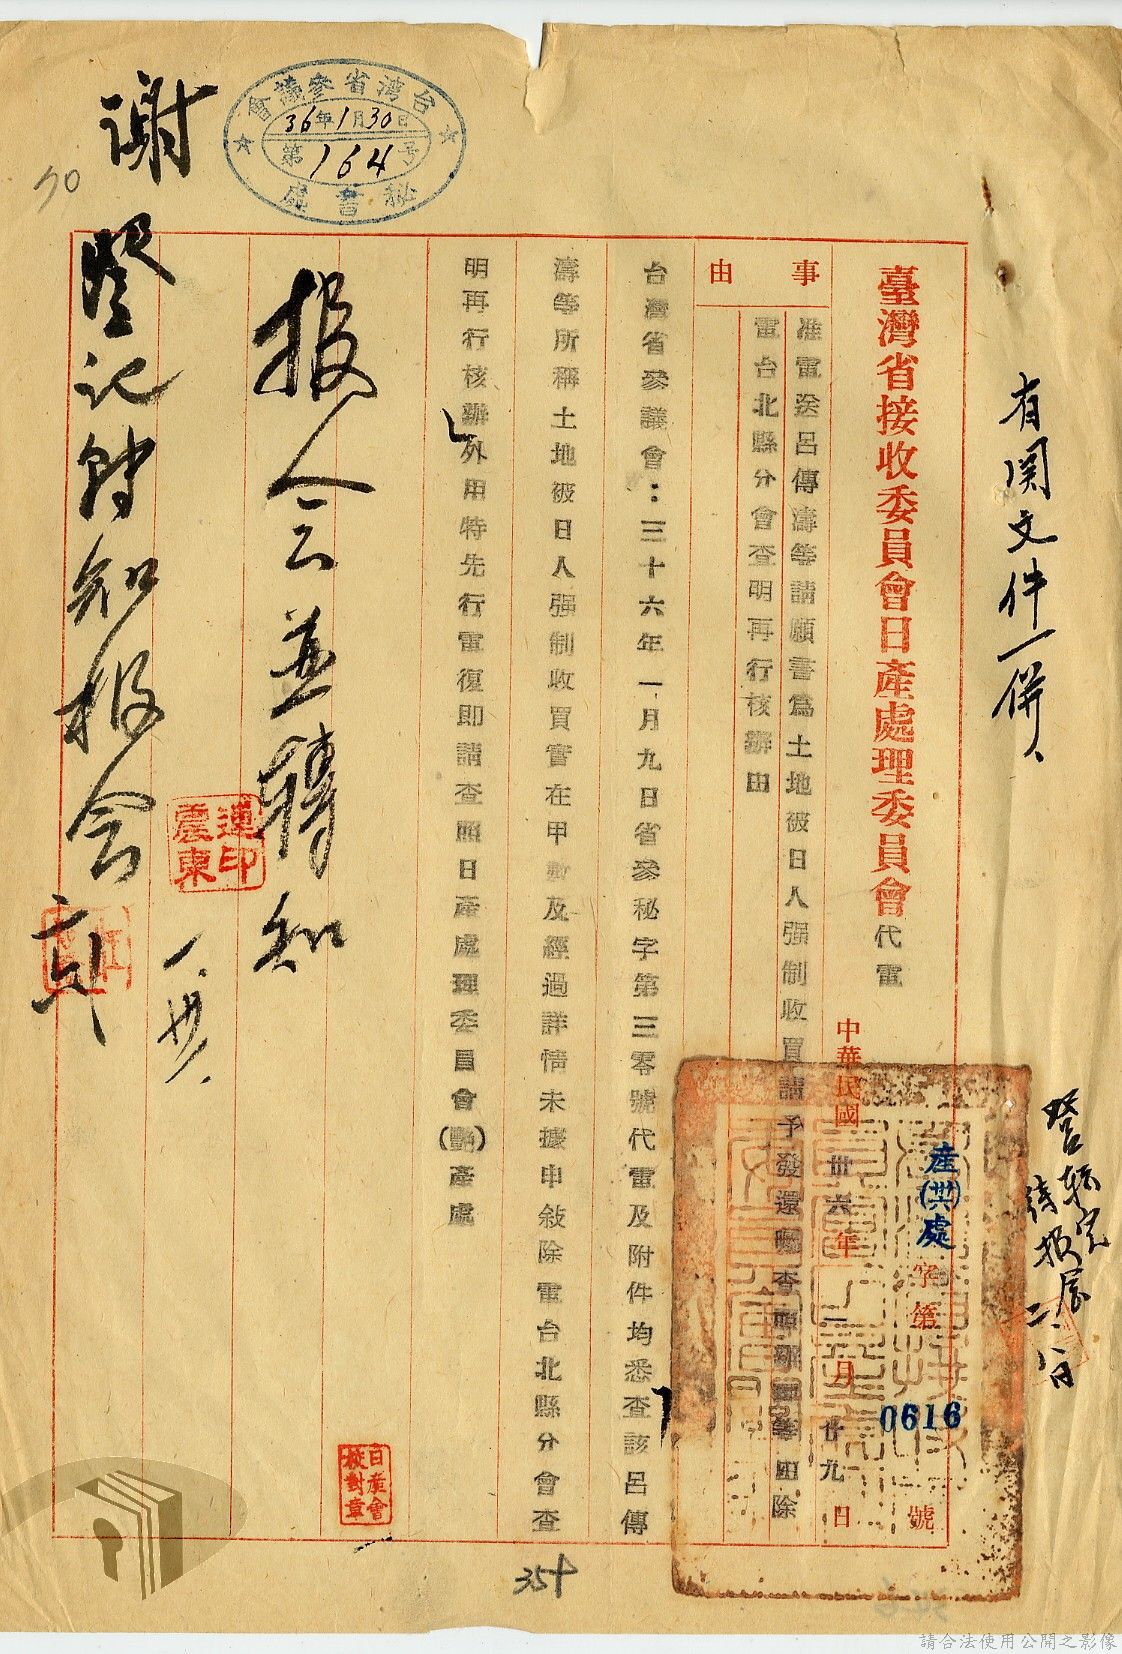 有関文件一併、
臺灣省接收委員會日產處理委員會代電
中華民國卅六年一月廿九日
產(卅六)處字第0616號
事由
准電送呂傳濤等請願書為土地被日人强制收買請予發還囑查照辦理等由除
電台北縣分會查明再行核辦由
台灣省參議會：三十六年一月九日省參秘字第三零號代電及附件均悉查該呂傳
濤等所稱土地被日人强制收買實在甲數及經過詳情未據申敍除電台北縣分會查
明再行核辦外用特先行電復即請查照日產處理委員會(艷)產處
台灣省參議會
36年1月30日
第164号
秘書處
报会並轉知
謝
登記轉知报会
連震東印
一、卅、
日產會校對章
二、
354
70
請合法使用公開之影像